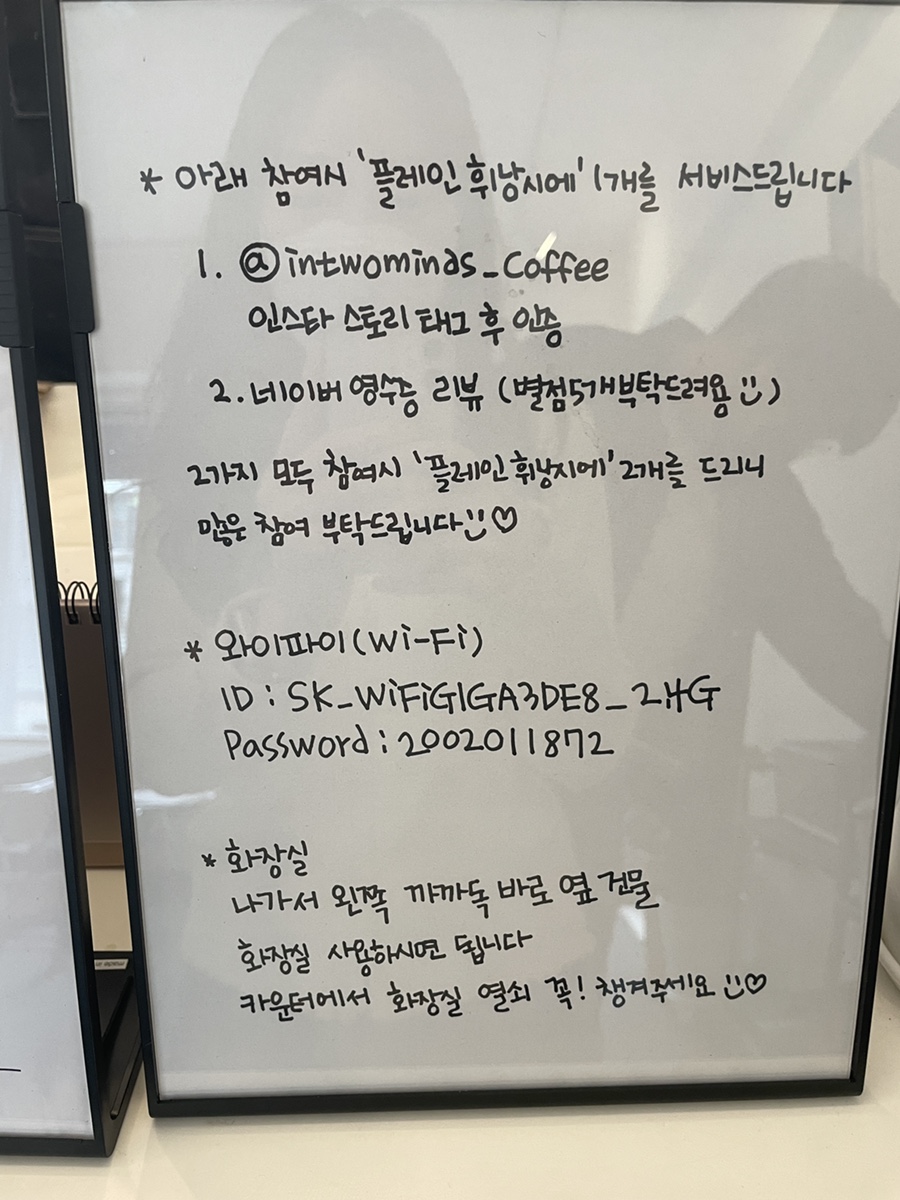 * 아래 참여시 '플레인 휘낭시에' 1개를 서비스드립니다
1. @intwominds_coffee
인스타 스토리 태그 후 인증
2. 네이버 영수증 리뷰 (별점5개부탁드려용 :))
2가지 모두 참여시 '플레인 휘낭시에' 2개를 드리니
많은 참여 부탁드립니다 :) ♡
* 와이파이(Wi-Fi)
ID : SK_WiFiGIGA3DE8_2.4G
Password : 2002011872
* 화장실
나가서 왼쪽 까까독 바로 옆 건물
화장실 사용하시면 됩니다
카운터에서 화장실 열쇠 꼭! 챙겨주세요 :) ♡